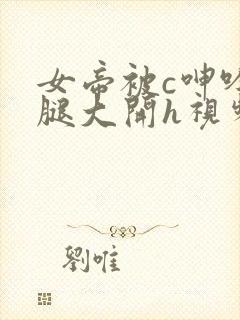 女帝被c呻吟
腿大開h視頻
劉唯